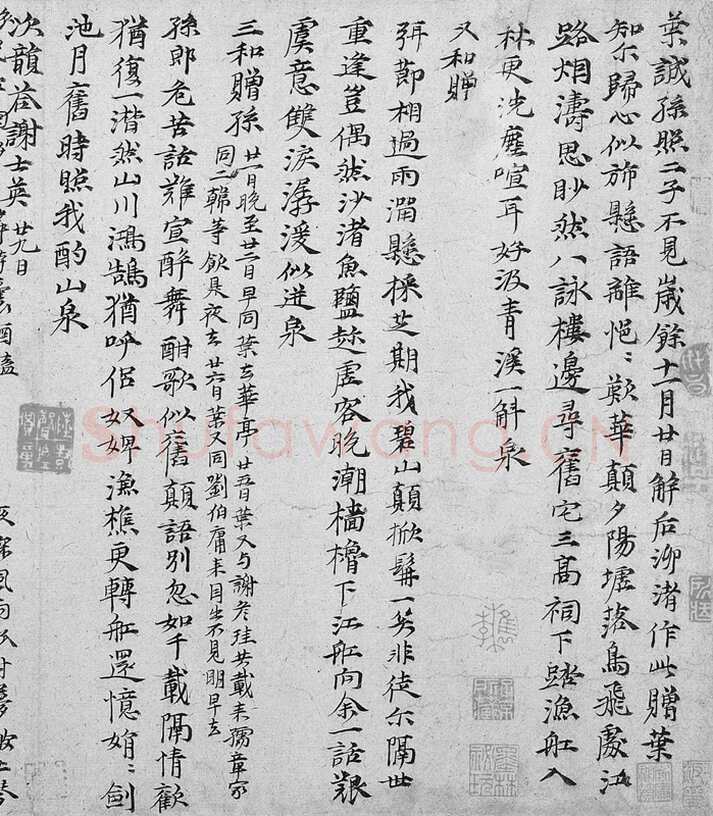 葉誠孫照二子不見歲餘十一月廿日解后泖渚作此贈葉
知尔歸心似旆懸語離悒〻歎華顛夕陽墟落鳥飛處江
路烟濤思眇然八詠樓邊尋舊宅三髙祠下踏漁舡入
林更洗塵喧耳好汲青溪一斛泉
又和贈
弭節過雨潤懸採芝期我碧山顛掀髯一笑非徒尔隔世
重逢豈偶然沙渚魚鹽趁虛客晚潮檣櫓下江舡向余一話艱
虞意雙淚潺湲似迸泉
三和贈孫
廿一日晚至廿二日早同葉去華亭廿五日葉又与謝彥珪共載来獨章不
同二韓等飲是夜去廿六日葉又同劉伯庸来因出不見明早去
孫郎危苦話難宣醉舞酣歌似舊顛語別忽如千載隔情歡
猶復一潸然山川鴻鵠猶呼侶奴婢漁樵更轉舡還憶娟〻劍
池月舊時照我酌山泉
次韻荅謝士英 廿九日
Shufawang.CN